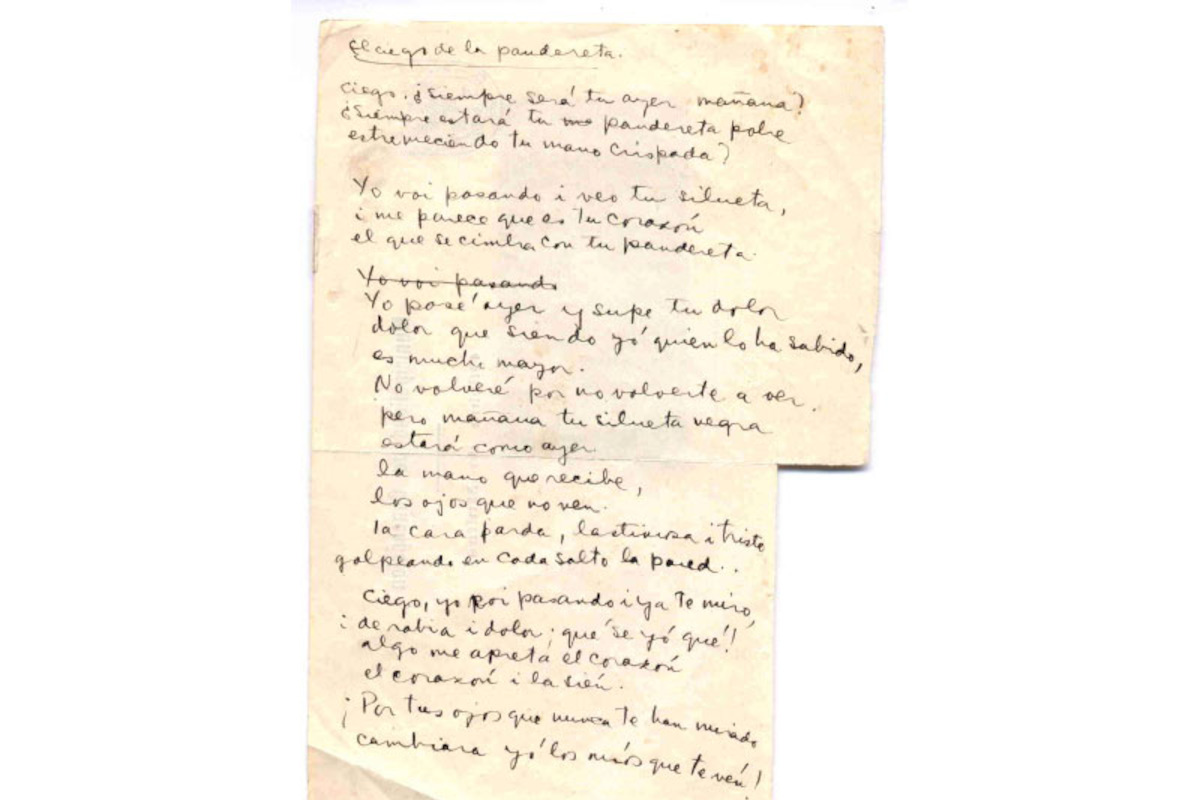 El ciego de la pandereta.
Ciego. ¿Siempre será tu ayer mañana?
¿Siempre estará tu pandereta pobre
estremeciendo tu mano crispada?
Yo voi pasando i veo tu silueta,
i me parece que es tu corazón
el que se cimbra con tu pandereta.
Yo voi pasando
Yo pasé ayer y supe tu dolor
dolor que siendo yó quien lo ha sabido,
es mucho mayor.
No volveré por no volverte a ver.
pero mañana tu silueta negra
estará como ayer.
la mano que recibe,
los ojos que no ven.
la cara parda, lastimosa i triste
golpeando en cada salto la pared..
Ciego, yo voi pasando i ya te miro,
¡de rabia i dolor; qué se yó qué!
algo me apreta el corazón
el corazón i la sién.
¡Por tus ojos que nunca te han mirado
cambiara yó los miós que te ven!